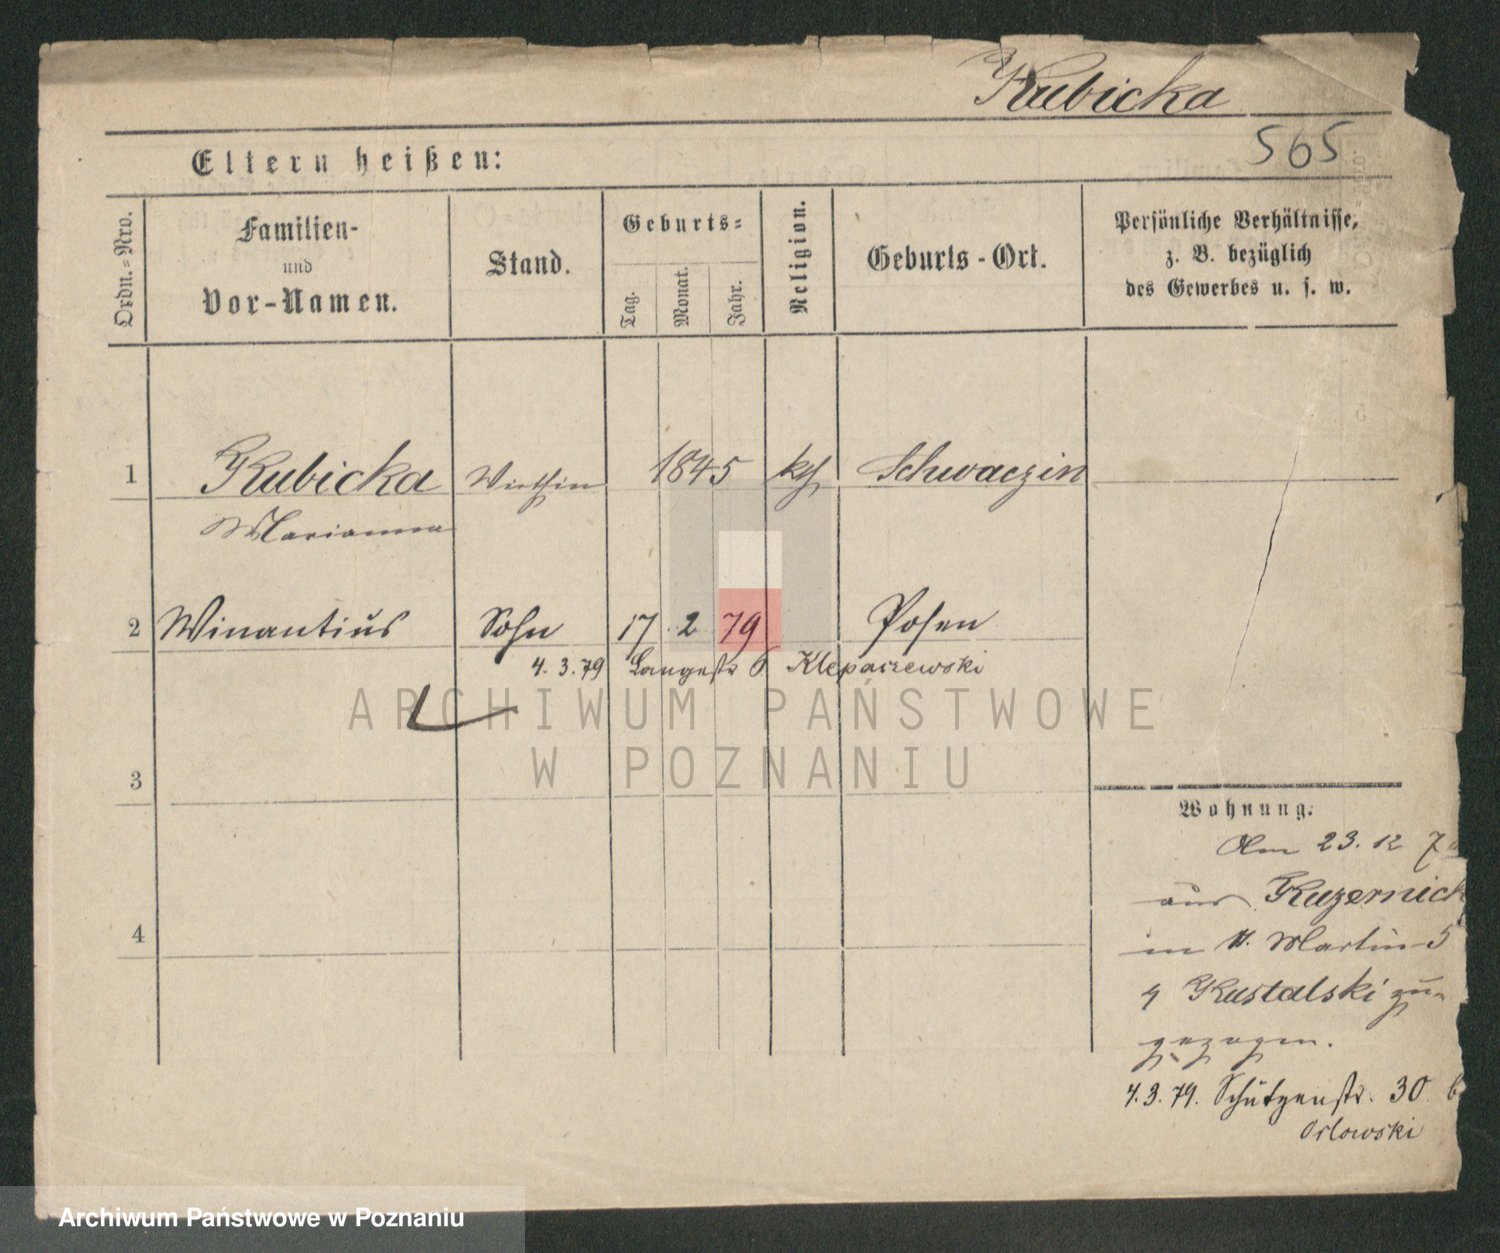 Kubicka
565
Eltern heißen:
Ordn.-Nro.
Familien-
und
Vor-Namen.
Stand.
Geburts-
Tag.
Monat.
Jahr.
Religion.
Geburts-Ort.
Persönliche Verhältnisse,
z. B. bezüglich
des Gewerbes u. s. w.
1 Kubicka Wirthin 1845 kth Schwaczin
Marianna
2 Winantius Sohn 17 2 79 Posen
4. 3. 79 Langestr 6 Klepaczewski
ARCHIWUM PAŃSTWOWE
W POZNANIU
3
4
Wohnung.
Am 23. 12 7
aus Kuzernick
in St. Martin 5
Kustalski zu-
gezogen.
4. 3. 79. Schützenstr. 30 b
Orlowski
Archiwum Państwowe w Poznaniu